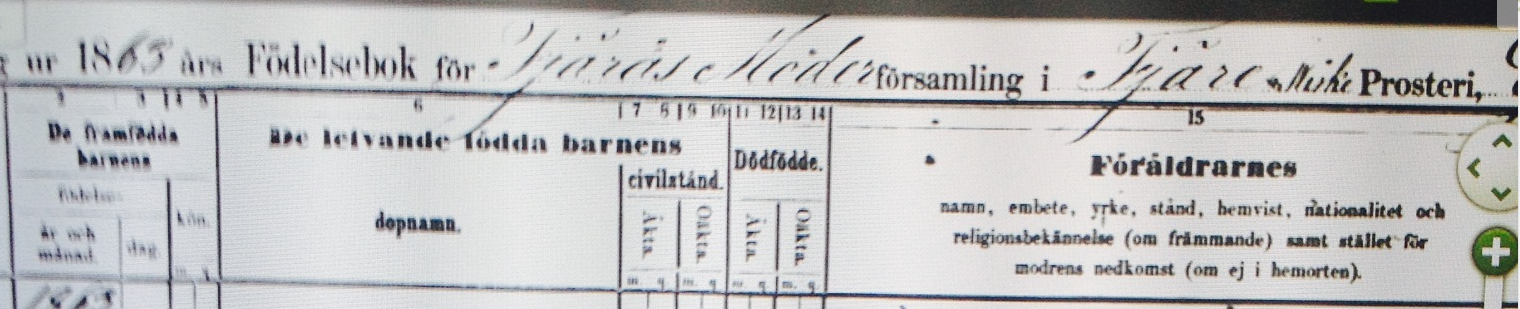 ur 1863 års Födelsebok för Fjärås Moder församling i Fjäre Prosteri,
6 7 8 9 10 11 12 13 14 15
De framfödda De lefvande födda barnens Dödfödde. Föräldrarnes
barnens civilstånd. namn, embete, yrke, stånd, hemvist, nationalitet och
födelse- kön. dopnamn. Äkta. Oäkta. Äkta. Oäkta. religionsbekännelse (om främmande) samt stället för
år och månad. dag. modrens nedkomst (om ej i hemorten).
m. q. m. q. m. q. m. q.
1863